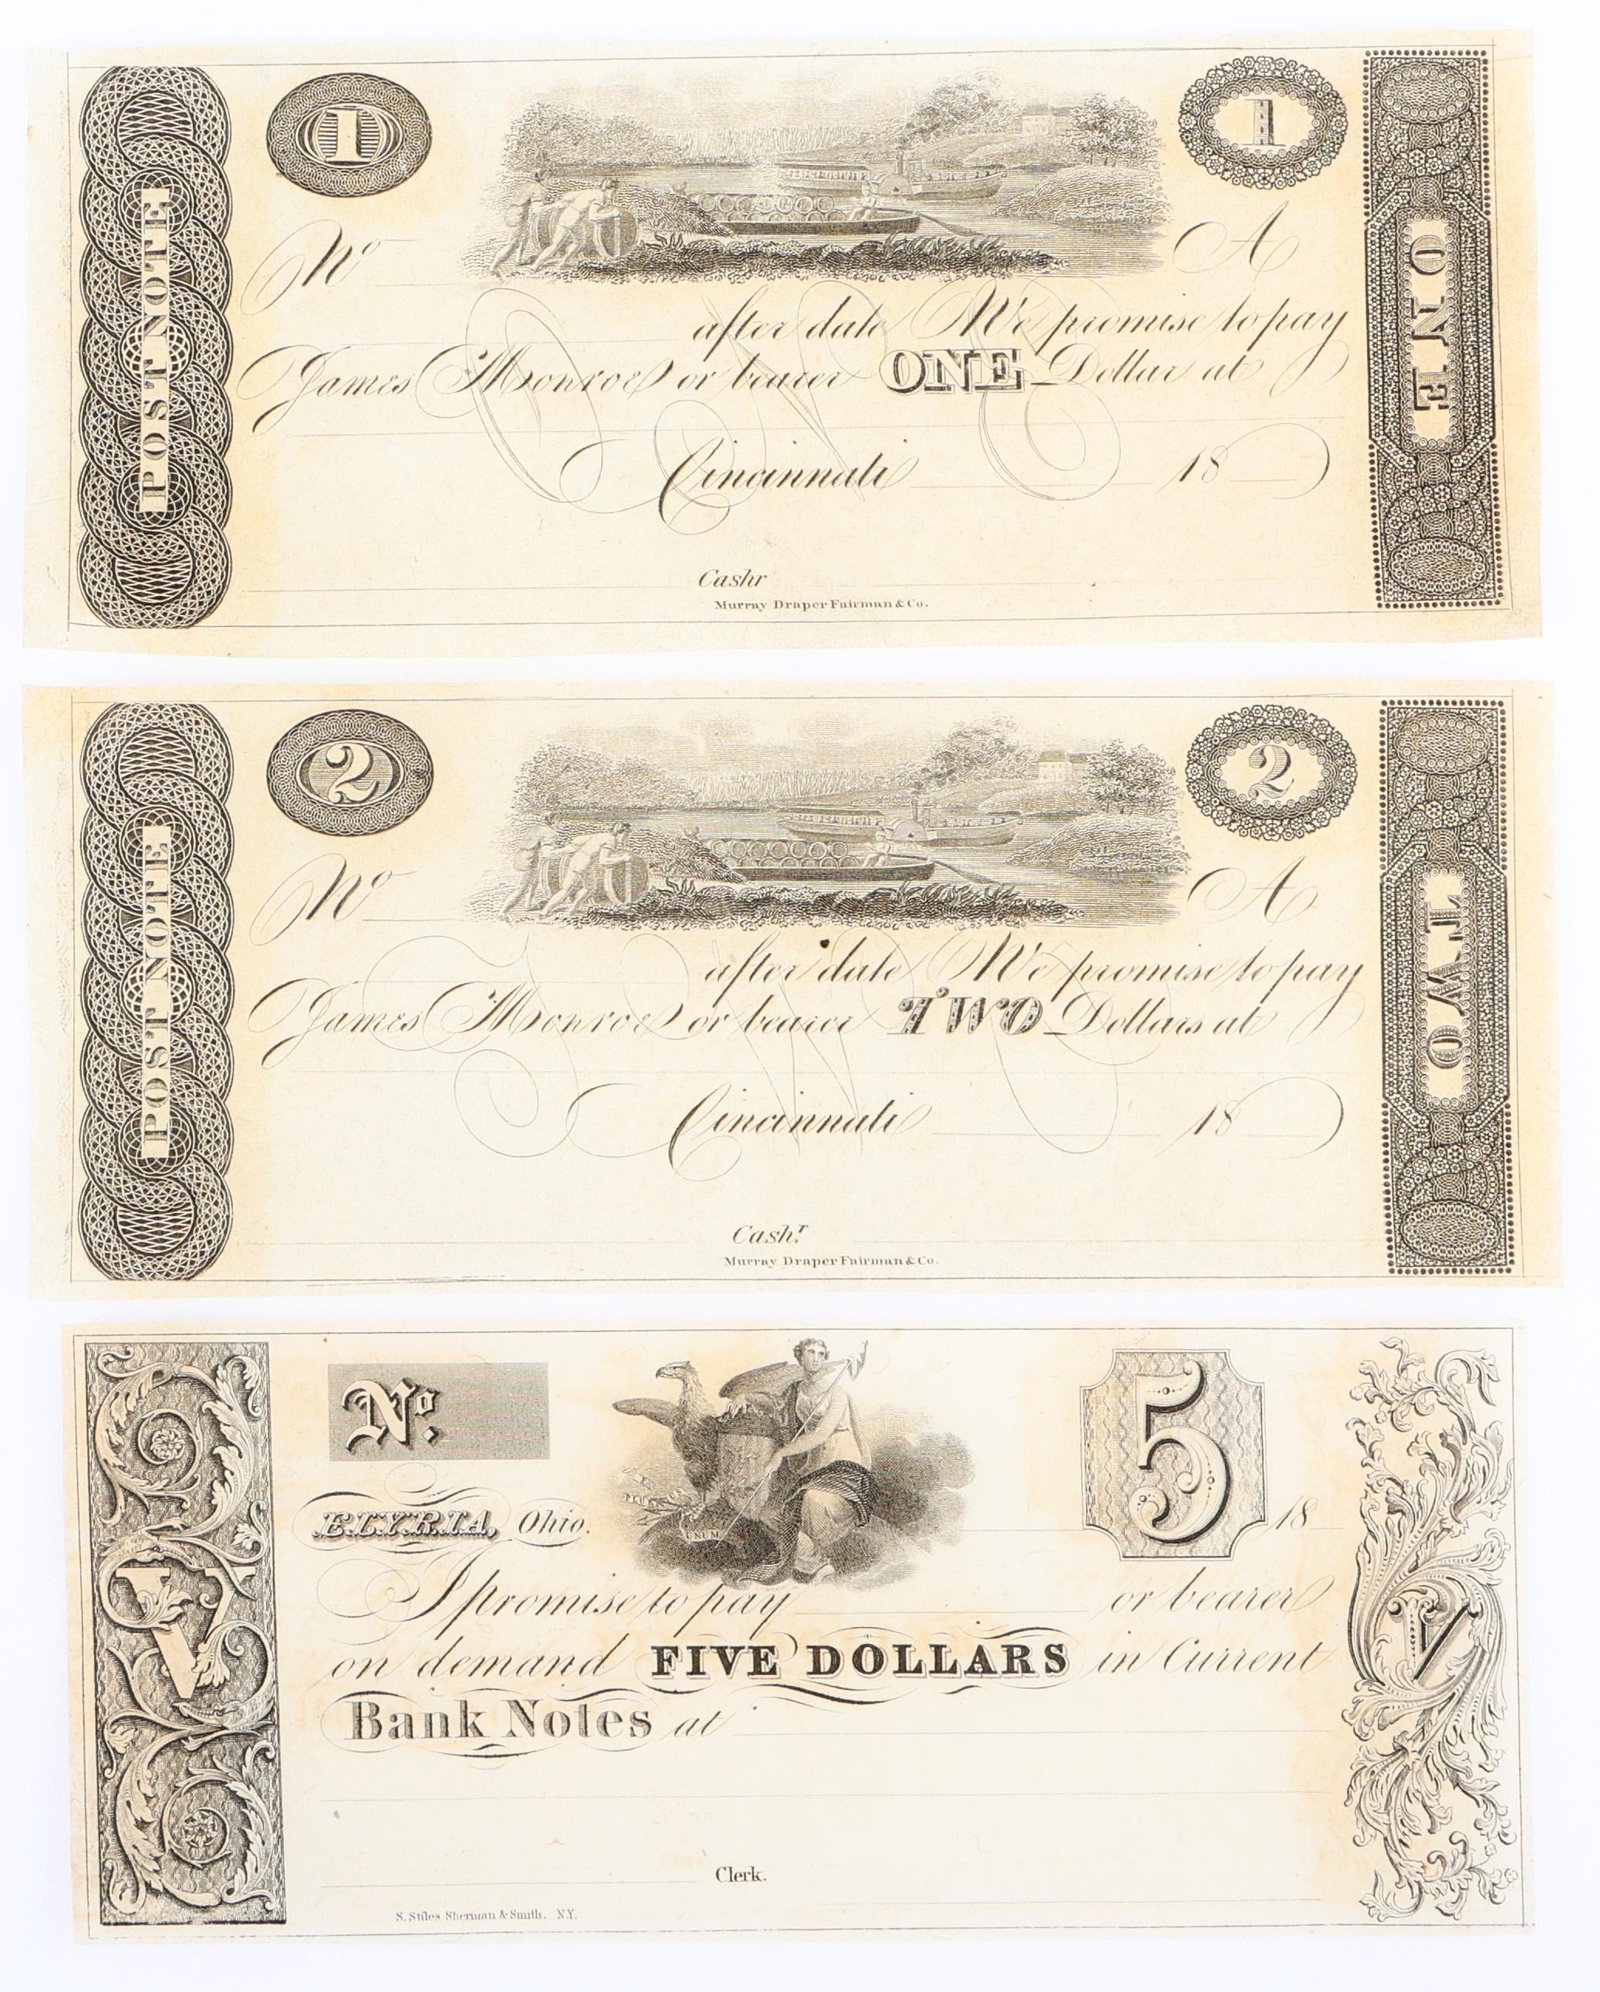 1 1
Nº A
after date We promise to pay
James Monroe or bearer ONE Dollar at
Cincinnati 18
Cashr
Murray Draper Fairman & Co.
POST NOTE
ONE
ONE
2 2
Nº A
after date We promise to pay
James Monroe or bearer TWO Dollars at
Cincinnati 18
Cash.r
Murray Draper Fairman & Co.
POST NOTE
TWO
TWO
Nº. 5
UNUM
ELYRIA, Ohio. 18
I promise to pay or bearer
on demand FIVE DOLLARS in Current
Bank Notes at
Clerk.
S. Stiles Sherman & Smith. N.Y.
V
V